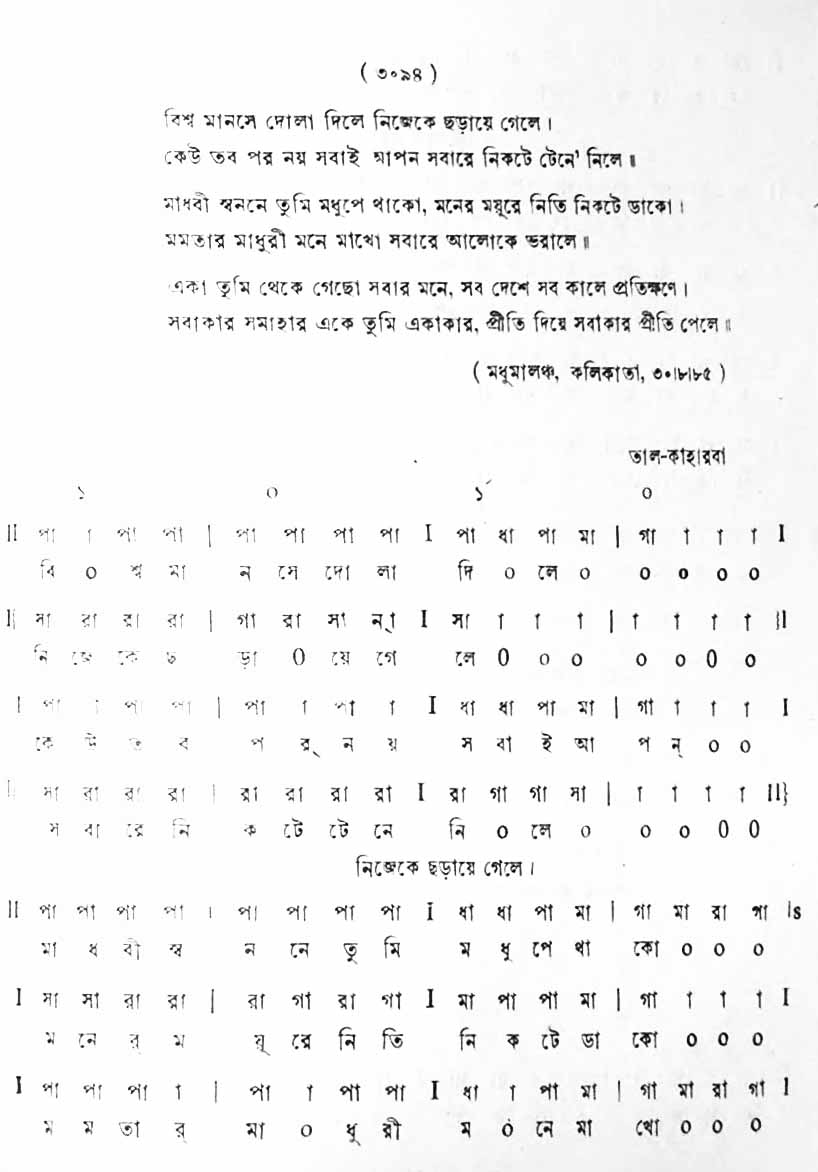 ( ৩০৯৪ )
বিশ্ব মানসে দোলা দিলে নিজেকে ছড়ায়ে গেলে।
কেউ তব পর নয় সবাই আপন সবারে নিকটে টেনে' নিলে॥
মাধবী স্বননে তুমি মধুপে থাকো, মনের ময়ূরে নিতি নিকটে ডাকো।
মমতার মাধুরী মনে মাখো সবারে আলোকে ভরালে॥
একা তুমি থেকে গেছো সবার মনে, সব দেশে সব কালে প্রতিক্ষণে।
সবাকার সমাহার একে তুমি একাকার, প্রীতি দিয়ে সবাকার প্রীতি পেলে॥
( মধুমালঞ্চ, কলিকাতা, ৩০।৮।৮৫ )
তাল-কাহারবা
১ ০ ১´ ০
II পা া পা পা | পা পা পা পা I পা ধা পা মা | গা া া া I
বি ০ শ্ব মা ন সে দো লা দি ০ লে ০ ০ ০ ০ ০
I{ সা রা রা রা | গা রা সা ন্া I সা া া া | া া া া }I
নি জে কে ছ ড়া ০ য়ে গে লে ০ ০ ০ ০ ০ ০ ০
I পা া পা পা | পা া পা া I ধা ধা পা মা | গা া া া I
কে উ ত ব প র্ ন য় স বা ই আ প ন্ ০ ০
I{ সা রা রা রা | রা রা রা রা I রা গা গা সা | া া া া II}
স বা রে নি ক টে টে নে নি ০ লে ০ ০ ০ ০ ০
নিজেকে ছড়ায়ে গেলে।
II পা পা পা পা | পা পা পা পা I ধা ধা পা মা | গা মা রা গা Is
মা ধ বী স্ব ন নে তু মি ম ধু পে থা কো ০ ০ ০
I সা সা রা রা | রা গা রা গা I মা পা পা মা | গা া া া I
ম নে র্ ম য়ূ রে নি তি নি ক টে ডা কো ০ ০ ০
I পা পা পা া | পা া পা পা I ধা া পা মা | গা মা রা গা I
ম ম তা র্ মা ০ ধু রী ম ০ নে মা খো ০ ০ ০